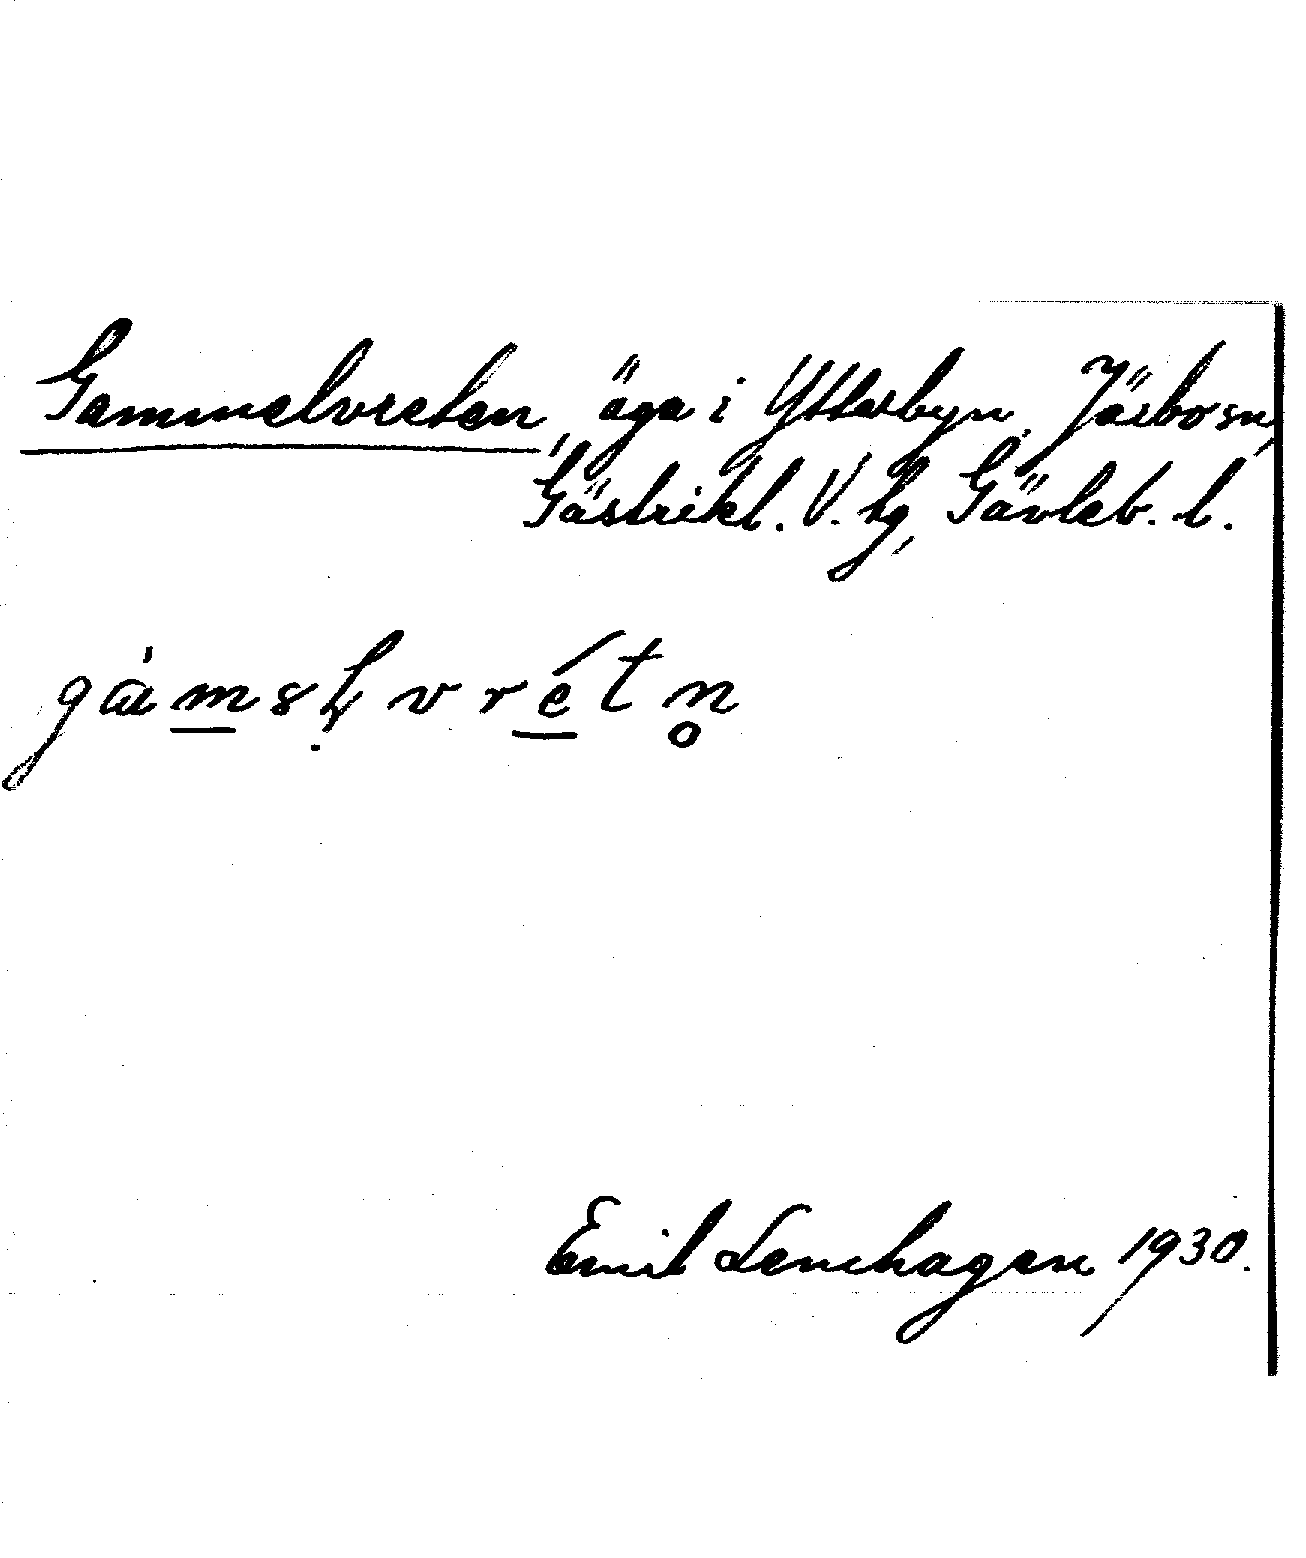 Gammelvreten, äga i Ytterbyn, Järbo sn,
Gästrikl. V. hg, Gävleb. l.
Emil Lenhagen 1930.